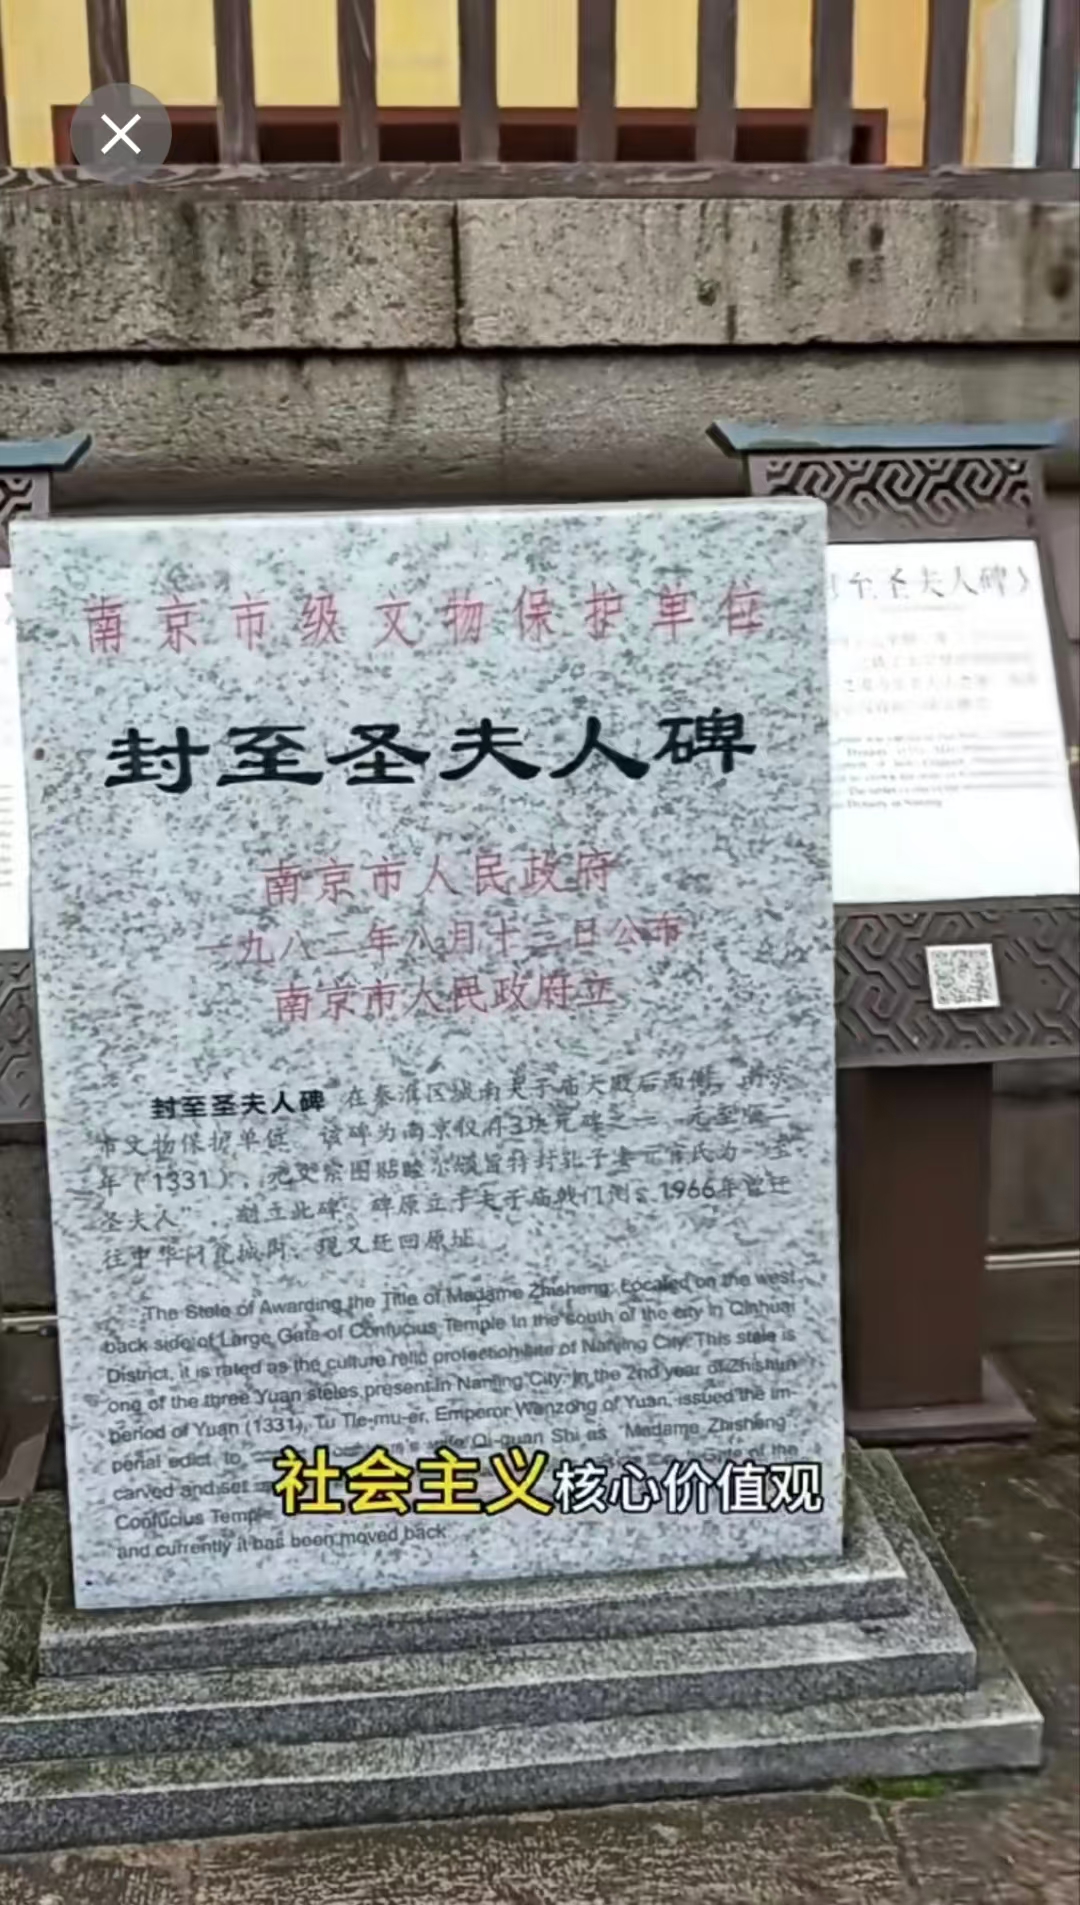 南京市级文物保护单位
封至圣夫人碑
南京市人民政府
一九八二年八月十三日公布
南京市人民政府立
封至圣夫人碑 在秦淮区城南夫子庙大殿后西侧，南京
市文物保护单位。该碑为南京仅有3块元碑之一。元至顺二
年（1331），元文宗图贴睦尔颁旨特封孔子妻亓官氏为"至
圣夫人"，刻立此碑。碑原立于夫子庙戟门侧，1966年曾迁
往中华门瓮城内，现又迁回原址。
The Stele of Awarding the Title of Madame Zhisheng: Located on the west
back side of Large Gate of Confucius Temple in the south of the city in Qinhuai
District, it is rated as the culture relic protection site of Nanjing City. This stele is
one of the three Yuan steles present in Nanjing City. In the 2nd year of Zhishun
period of Yuan (1331), Tu Tie-mu-er, Emperor Wenzong of Yuan, issued the im-
perial edict to wife Qi-guan Shi as "Madame Zhisheng",
carved and set Gate of the
Confucius Temple
and currently it has been moved back.
社会主义核心价值观
至圣夫人碑》